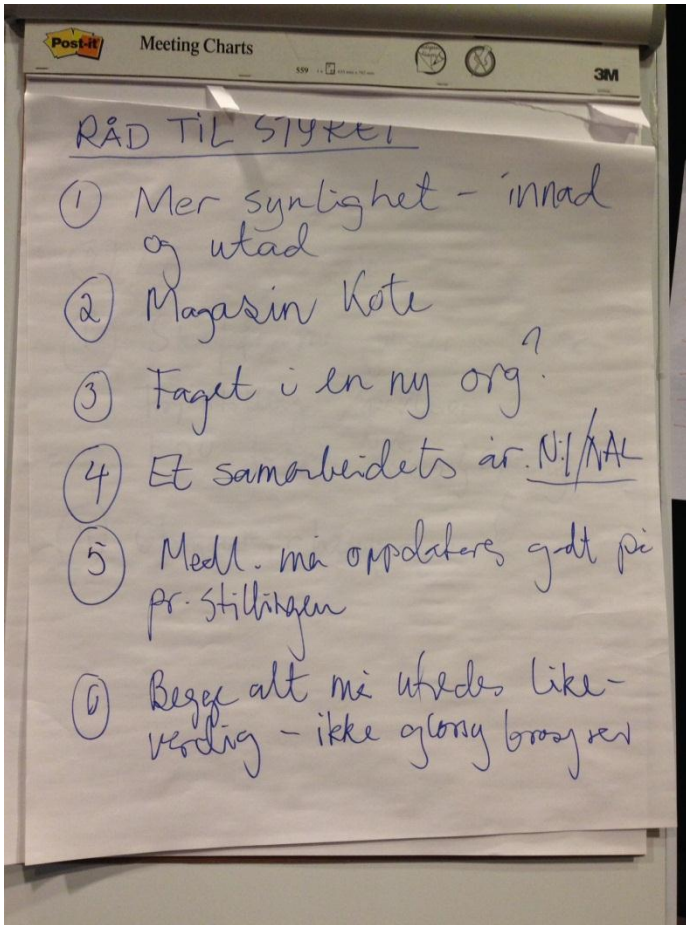 Post-it
Meeting Charts
559
3M
RÅD TIL STYRET
1 Mer synlighet - innad
og utad
2 Magasin Kote
3 Faget i en ny org?
4 Et samarbeidets år. NIL/NAL
5 Medl. må oppdateres godt på
pr. stillingen
6 Begge alt må utredes like-
verdig - ikke glossy brosjyrer